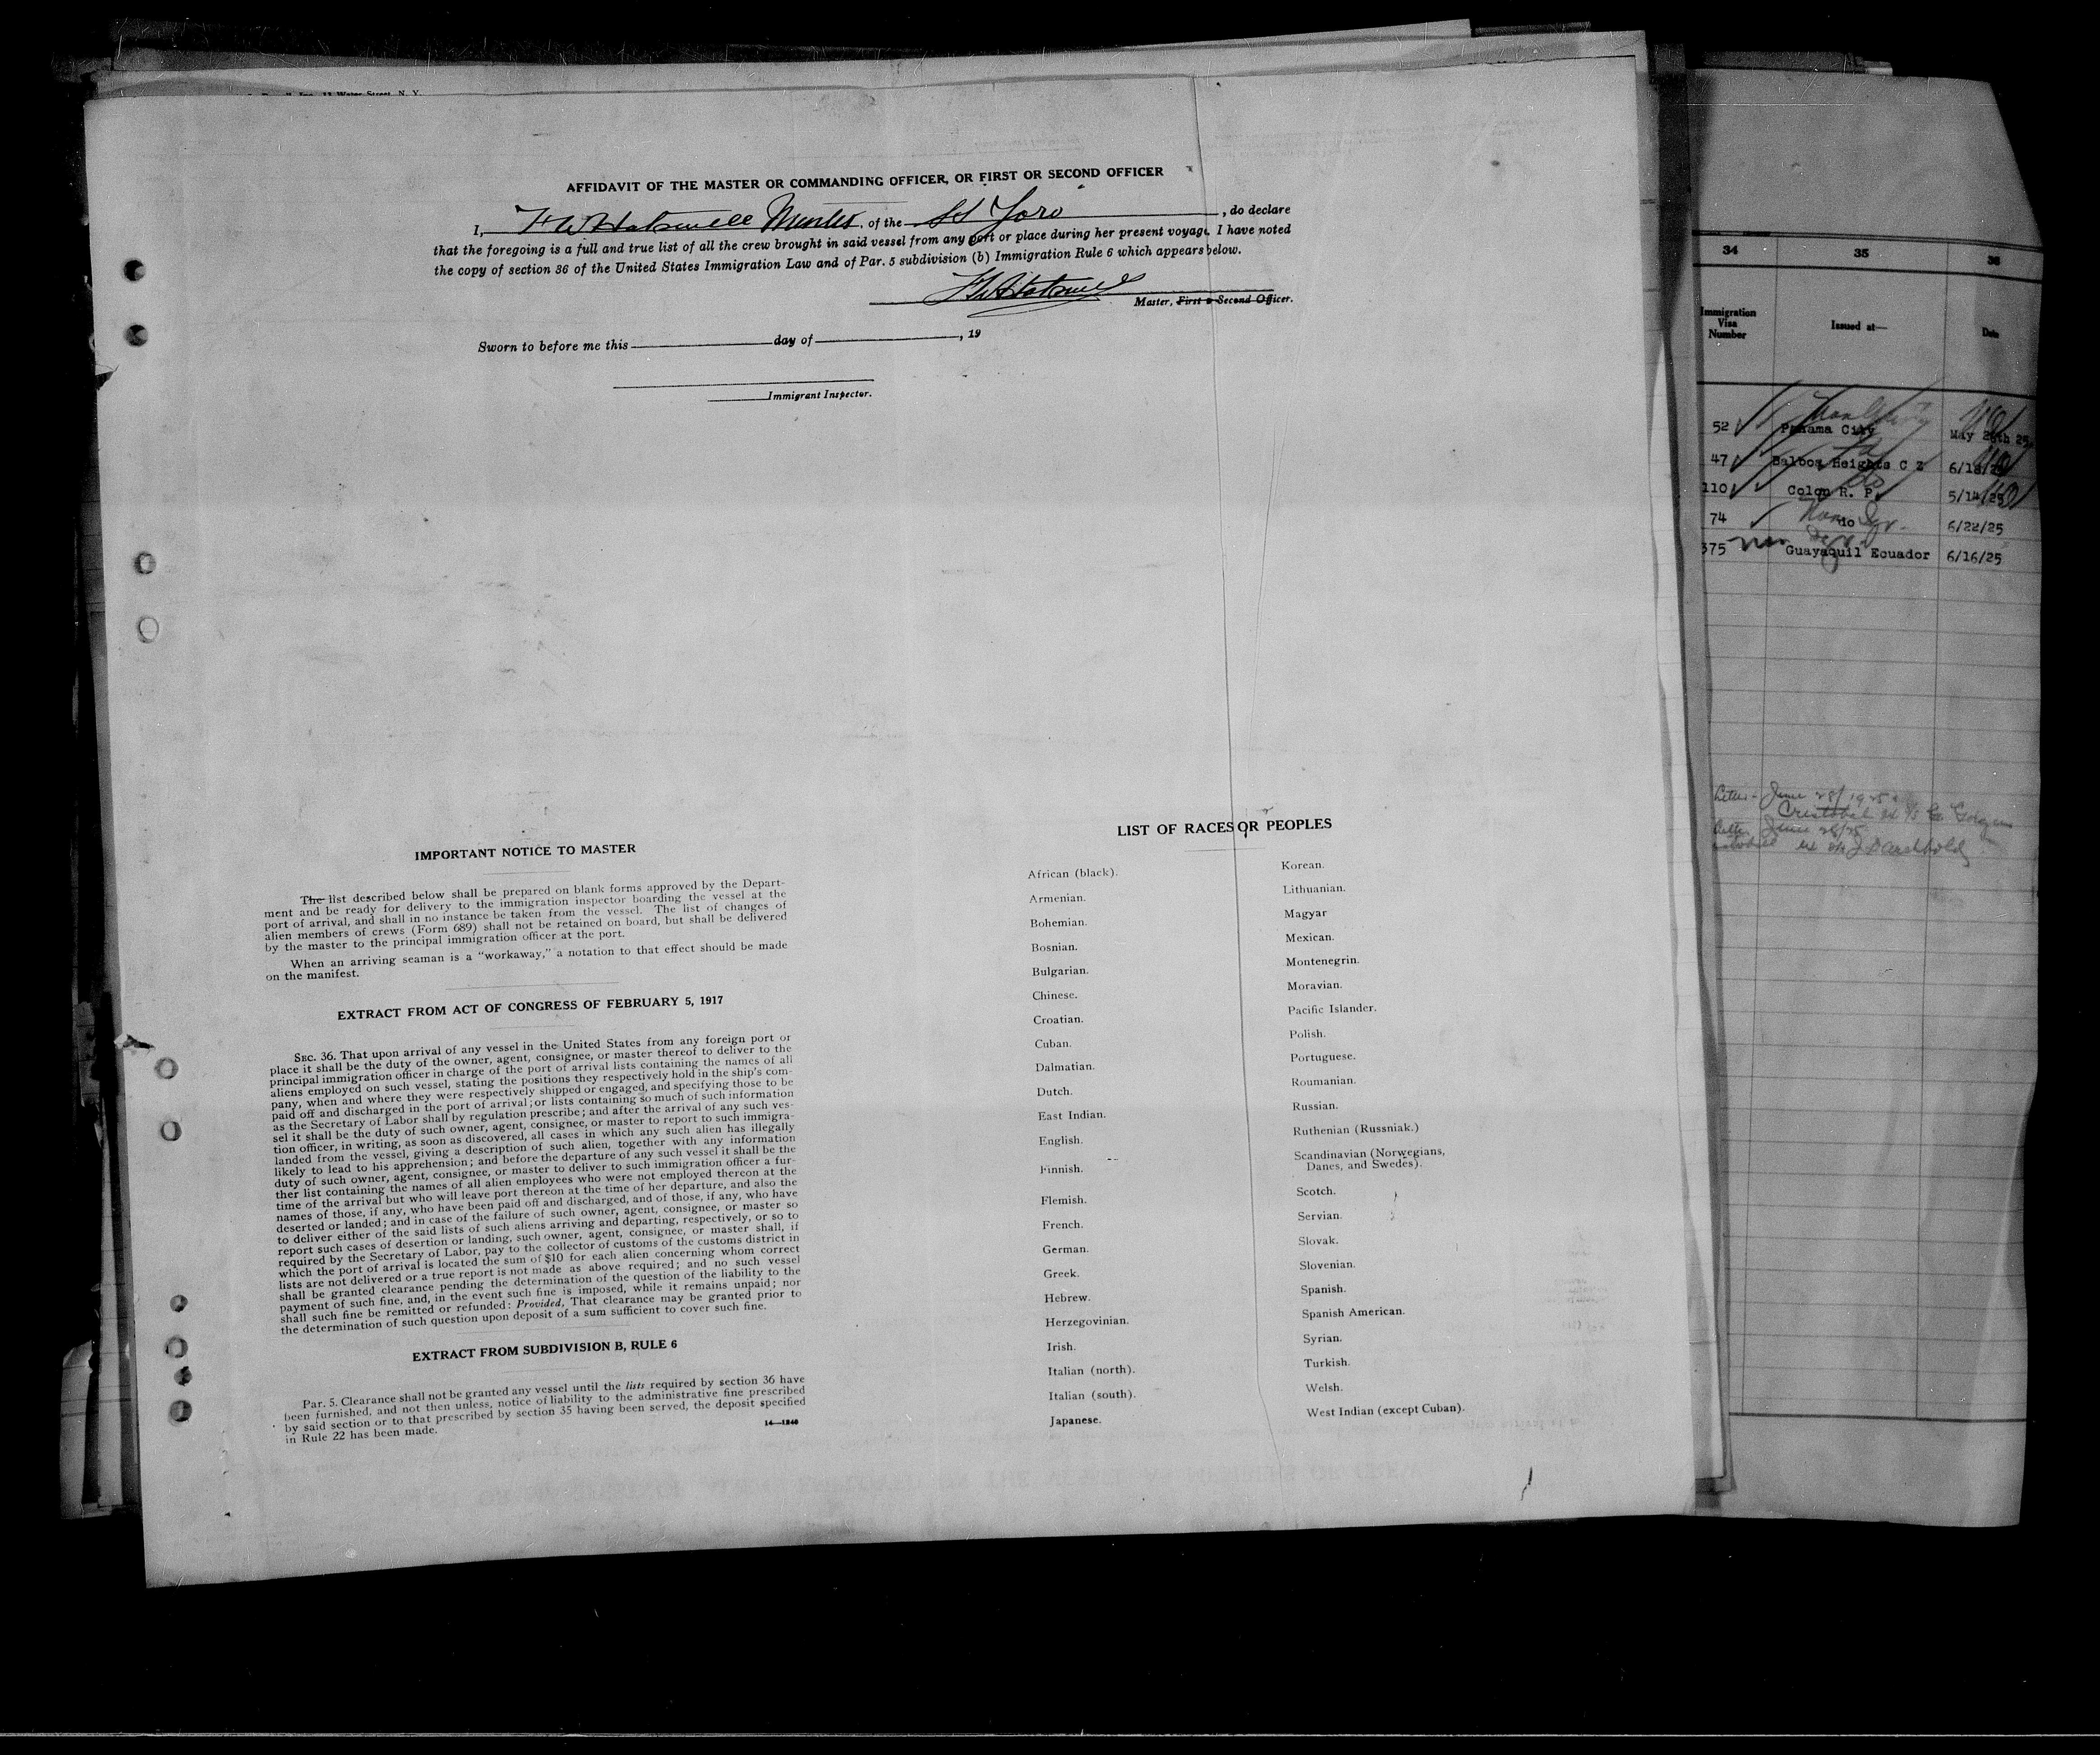 11 Water Street, N. Y.
AFFIDAVIT OF THE MASTER OR COMMANDING OFFICER, OR FIRST OR SECOND OFFICER
I, F W Hatswell Master of the SS Yoro, do declare
that the foregoing is a full and true list of all the crew brought in said vessel from any port or place during her present voyage. I have noted
the copy of section 36 of the United States Immigration Law and of Par. 5 subdivision (b) Immigration Rule 6 which appears below.
Master, First or Second Officer.
Sworn to before me this day of , 19
Immigrant Inspector.
IMPORTANT NOTICE TO MASTER
The list described below shall be prepared on blank forms approved by the Depart-
ment and be ready for delivery to the immigration inspector boarding the vessel at the
port of arrival, and shall in no instance be taken from the vessel. The list of changes of
alien members of crews (Form 689) shall not be retained on board, but shall be delivered
by the master to the principal immigration officer at the port.
When an arriving seaman is a "workaway," a notation to that effect should be made
on the manifest.
EXTRACT FROM ACT OF CONGRESS OF FEBRUARY 5, 1917
SEC. 36. That upon arrival of any vessel in the United States from any foreign port or
place it shall be the duty of the owner, agent, consignee, or master thereof to deliver to the
principal immigration officer in charge of the port of arrival lists containing the names of all
aliens employed on such vessel, stating the positions they respectively hold in the ship's com-
pany, when and where they were respectively shipped or engaged, and specifying those to be
paid off and discharged in the port of arrival; or lists containing so much of such information
as the Secretary of Labor shall by regulation prescribe; and after the arrival of any such ves-
sel it shall be the duty of such owner, agent, consignee, or master to report to such immigra-
tion officer, in writing, as soon as discovered, all cases in which any such alien has illegally
landed from the vessel, giving a description of such alien, together with any information
likely to lead to his apprehension; and before the departure of any such vessel it shall be the
duty of such owner, agent, consignee, or master to deliver to such immigration officer a fur-
ther list containing the names of all alien employees who were not employed thereon at the
time of the arrival but who will leave port thereon at the time of her departure, and also the
names of those, if any, who have been paid off and discharged, and of those, if any, who have
deserted or landed; and in case of the failure of such owner, agent, consignee, or master so
to deliver either of the said lists of such aliens arriving and departing, respectively, or so to
report such cases of desertion or landing, such owner, agent, consignee, or master shall, if
required by the Secretary of Labor, pay to the collector of customs of the customs district in
which the port of arrival is located the sum of $10 for each alien concerning whom correct
lists are not delivered or a true report is not made as above required; and no such vessel
shall be granted clearance pending the determination of the question of the liability to the
payment of such fine, and, in the event such fine is imposed, while it remains unpaid; nor
shall such fine be remitted or refunded: Provided, That clearance may be granted prior to
the determination of such question upon deposit of a sum sufficient to cover such fine.
EXTRACT FROM SUBDIVISION B, RULE 6
Par. 5. Clearance shall not be granted any vessel until the lists required by section 36 have
been furnished, and not then unless, notice of liability to the administrative fine prescribed
by said section or to that prescribed by section 35 having been served, the deposit specified
in Rule 22 has been made.
14—1240
LIST OF RACES OR PEOPLES
African (black).
Armenian.
Bohemian.
Bosnian.
Bulgarian.
Chinese.
Croatian.
Cuban.
Dalmatian.
Dutch.
East Indian.
English.
Finnish.
Flemish.
French.
German.
Greek.
Hebrew.
Herzegovinian.
Irish.
Italian (north).
Italian (south).
Japanese.
Korean.
Lithuanian.
Magyar
Mexican.
Montenegrin.
Moravian.
Pacific Islander.
Polish.
Portuguese.
Roumanian.
Russian.
Ruthenian (Russniak.)
Scandinavian (Norwegians,
Danes, and Swedes).
Scotch.
Servian.
Slovak.
Slovenian.
Spanish.
Spanish American.
Syrian.
Turkish.
Welsh.
West Indian (except Cuban).
34 35 36
Immigration
Visa
Number
Issued at—
Date
52 Panama City May 25
47 Balboa Heights C Z 6/18/25
110 Colon R. P. 5/14/25
74 do 6/22/25
375 Guayaquil Ecuador 6/16/25
Letter - June 28/1925
Cristobal
Letter June 28/25